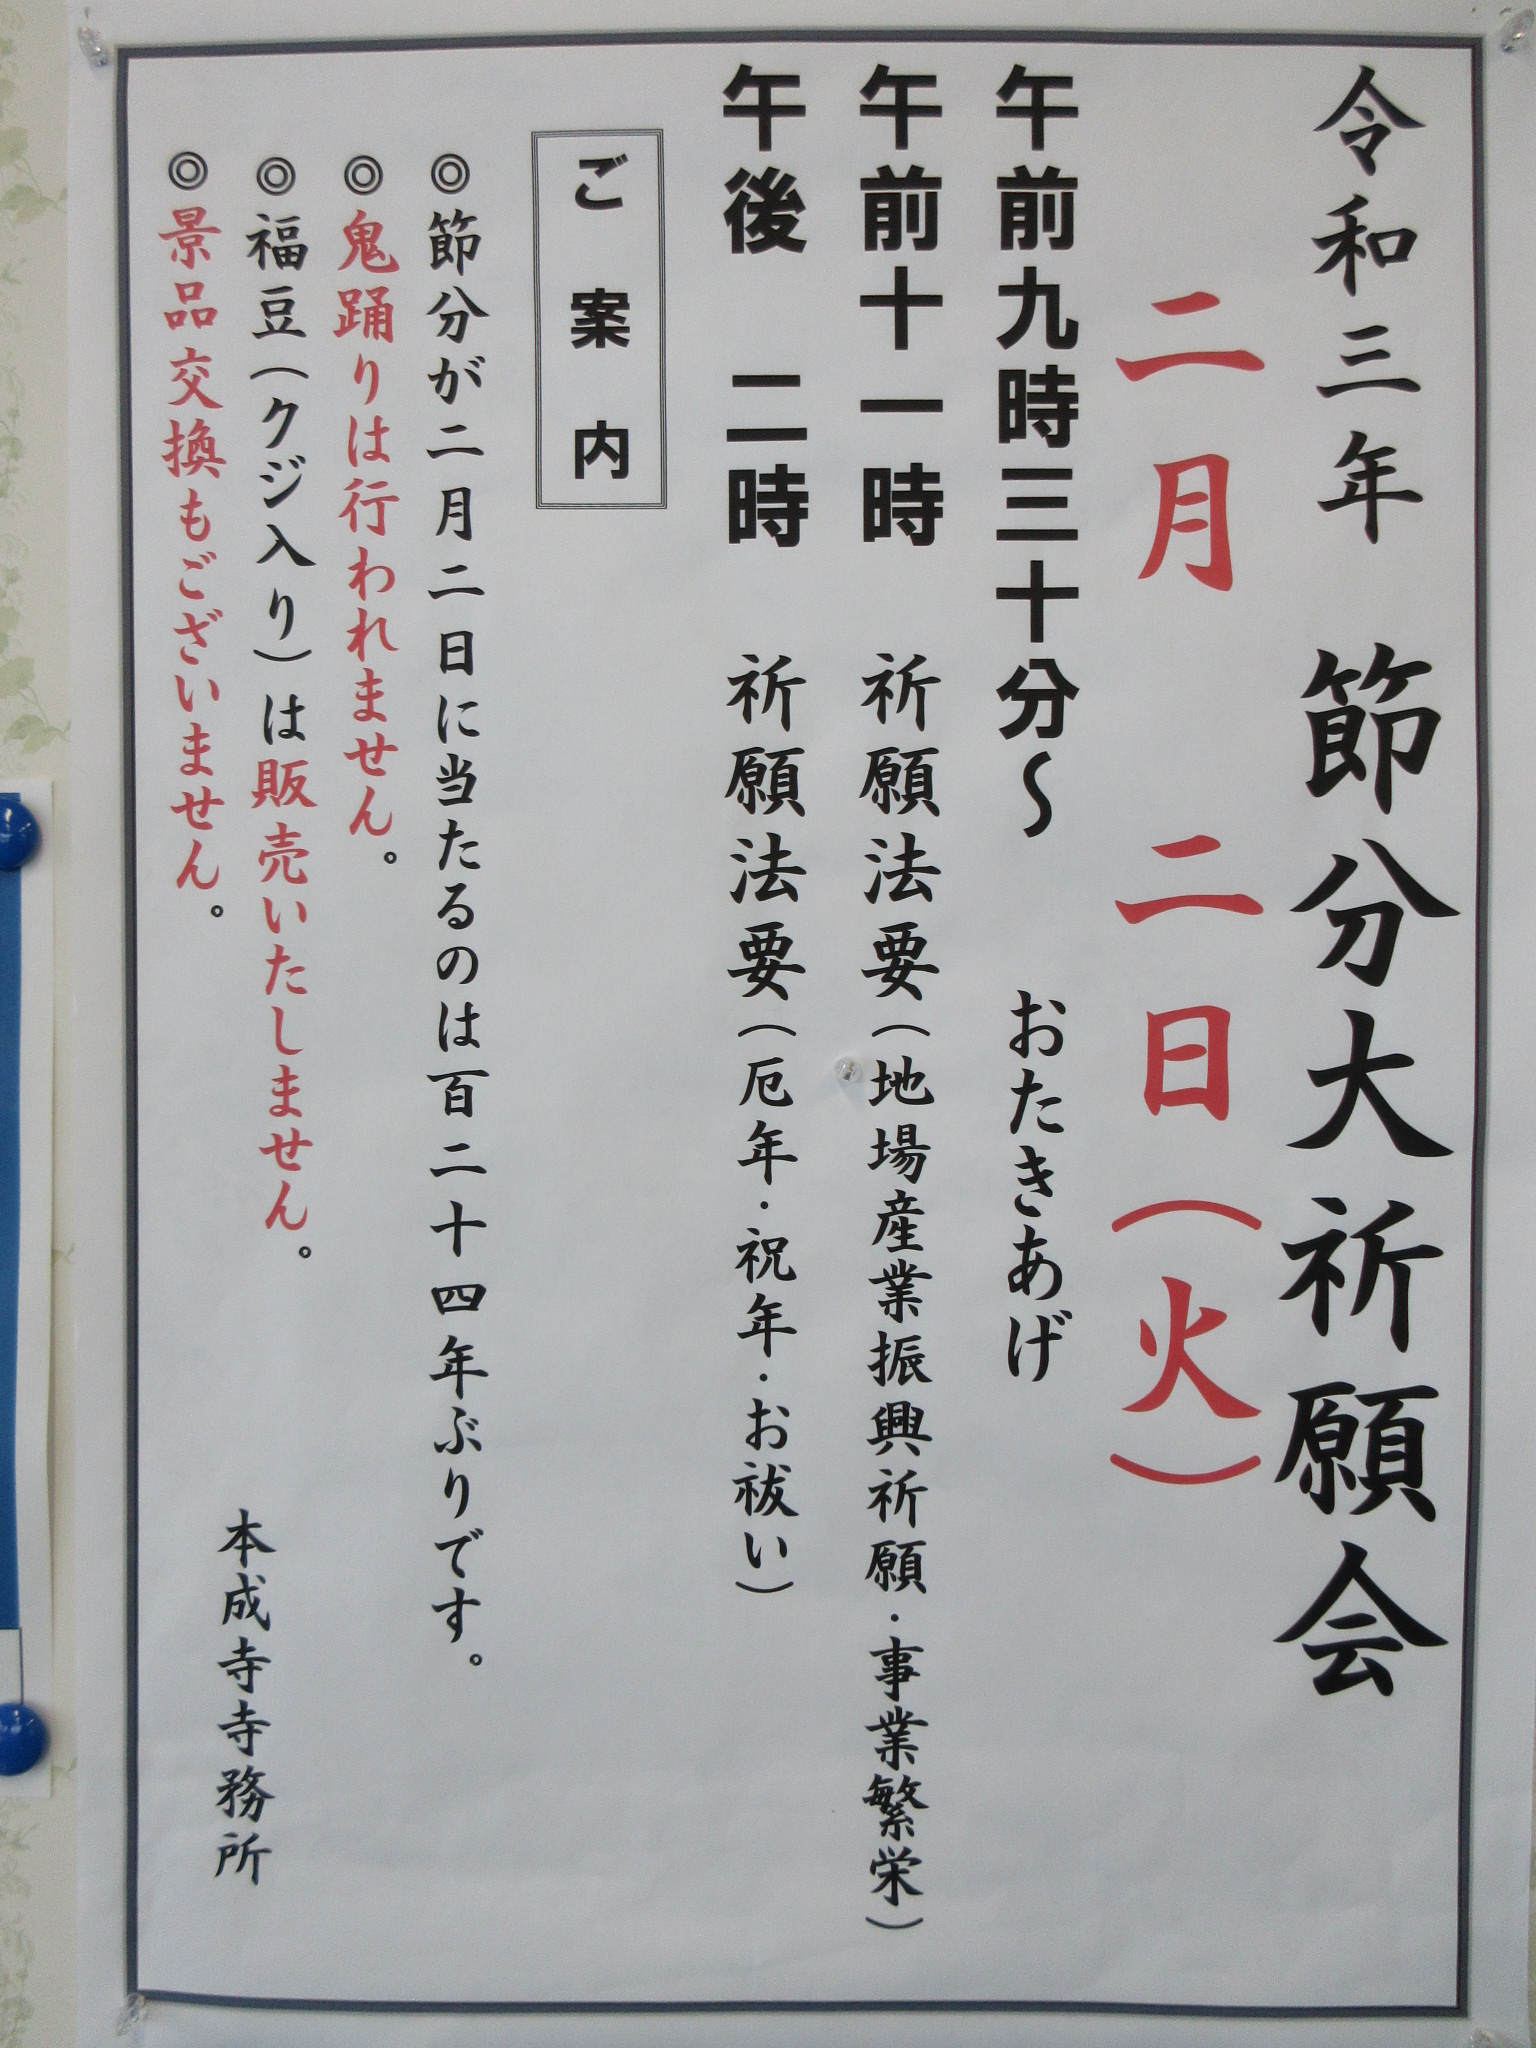 令和三年　節分大祈願会
二月　二日（火）
午前九時三十分〜　おたきあげ
午前十一時　祈願法要（地場産業振興祈願・事業繁栄）
午後　二時　祈願法要（厄年・祝年・お祓い）
ご案内
◎節分が二月二日に当たるのは百二十四年ぶりです。
◎鬼踊りは行われません。
◎福豆（クジ入り）は販売いたしません。
◎景品交換もございません。
本成寺寺務所